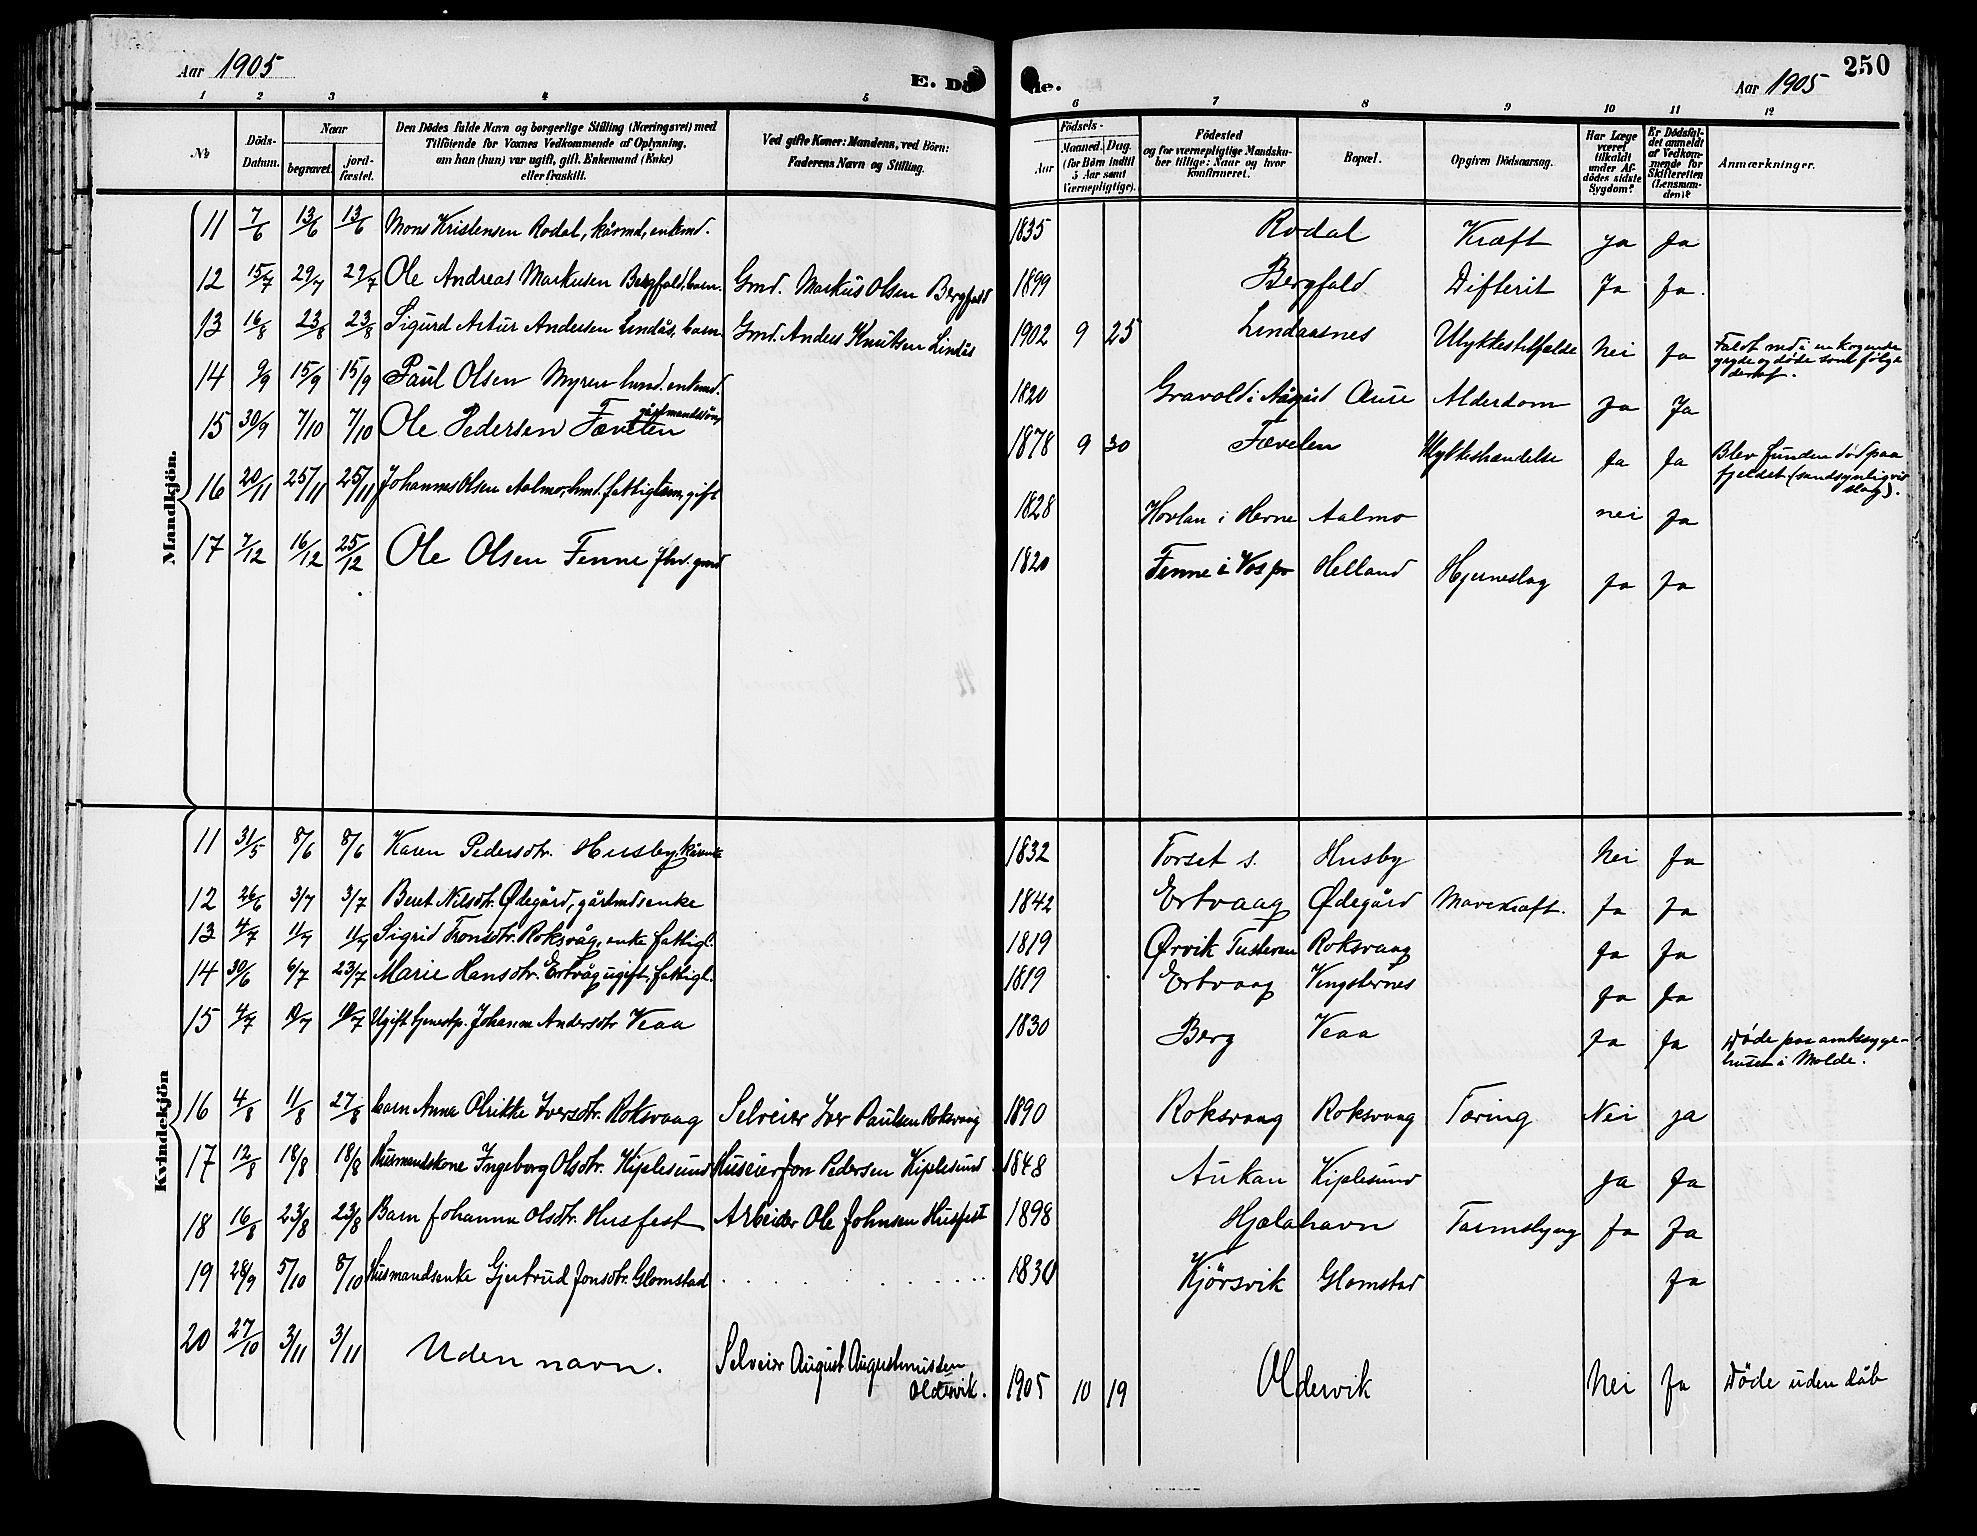 Aar 1905
E. Dö de.
Aar 1905
250
1 2 3 4 5 6 7 8 9 10 11 12
No
Döds-Datum.
Naar
begravet.
jord-fæstet.
Den Dödes fulde Navn og borgerlige Stilling (Næringsvei) med
Tilföiende for Voxnes Vedkommende af Oplysning,
om han (hun) var ugift, gift, Enkemand (Enke)
eller fraskilt.
Ved gifte Koner: Mandens, ved Börn:
Faderens Navn og Stilling.
Födsels-
Aar
Maaned. Dag.
(for Börn indtil
5 Aar samt
Værnepligtige).
Födested
og for værnepligtige Mandska-
ber tillige: Naar og hvor
konfirmeret.
Bopæl.
Opgiven Dödsaarsag.
Har Læge
været
tilkaldt
under Af-
dödes sidste
Sygdom?
Er Dödsfal-
det anmeldt
af Vedkom-
mende for
Skifteretten
(Lensman-
den)?
Anmærkninger.
Mandkjön.
11 7/6 13/6 13/6 Mons Kristensen Rodal, kårmd, enkmd. 1835 Rodal Kræft ja Ja
12 15/7 29/7 29/7 Ole Andreas Markusen Bergfald, barn. Gmd. Markus Olsen Bergfald 1899 Bergfald Difterit Ja Ja.
13 16/8 23/8 23/8 Sigurd Artur Andersen Lindås, barn. Gmd. Anders Knutsen Lindås 1902 9 25 Lindaasnes Ulykkestilfælde Nei Ja Faldt ned i en kogende
gryde og døde som følge
deraf.
14 9/9 15/9 15/9 Paul Olsen Myren hmd. enkmd. 1820 Gravold i Aasgård Aure Alderdom Ja Ja
15 30/9 7/10 7/10 Ole Pedersen Fævelen gårdmandssøn, 1878 9 30 Fævelen Ulykkeshændelse Ja Ja Blev funden død paa
fjeldet (sandsynligvis
slag).
16 20/11 25/11 25/11 Johannes Olsen Aalmo, hmd. fattiglem, gift 1828 Hovlan i Herne Aalmo nei Ja
17 7/12 16/12 25/12 Ole Olsen Fenne fhv. gmd 1820 Fenne i Vos p Helland Hjerneslag Ja Ja
Kvindekjön
11 31/5 8/6 8/6 Karen Pedersdtr. Husby, kårenke 1832 Torset s. Husby Nei Ja
12 26/6 3/7 3/7 Beret Nilsdtr. Ødegård, gårdmdsenke 1842 Ertvaag Ødegård Mavekræft. Ja Ja
13 4/7 11/7 11/7 Sigrid Tronsdtr. Roksvåg, enke fattigl. 1819 Ørvik Tusteren Roksvaag Ja Ja
14 30/6 6/7 23/7 Marie Hansdtr. Ertvåg ugift, fattigl. 1819 Ertvaag Vingsternes Ja Ja
15 4/7 Ugift tjenestp. Johanna Andersdtr Veaa 1830 Berg Veaa Ja Ja Døde paa amtssyge-
huset i Molde.
16 4/8 11/8 27/8 barn Anna Olrikke Iversdtr. Roksvaag Selveier Iver Paulsen Roksvaag 1890 Roksvaag Roksvaag Tæring Nei ja
17 12/8 18/8 18/8 Husmandskone Ingeborg Olsdtr. Kiplesund Huseier Jon Pedersen Kiplesund 1848 Aukan Kiplesund ja Ja
18 16/8 23/8 23/8 Barn Johanna Olsdtr. Husfest Arbeider Ole Johnsen Husfest 1898 Hjelahavn Tarmslyng Ja Ja
19 28/9 5/10 8/10 Husmandsenke Gjertrud Jonsdtr. Glomstad 1830 Kjørsvik Glomstad Ja
20 27/10 3/11 3/11 Uden navn. Selveier August Augustinussen
Oldervik. 1905 10 19 Oldervik Nei Ja Døde uden dåb